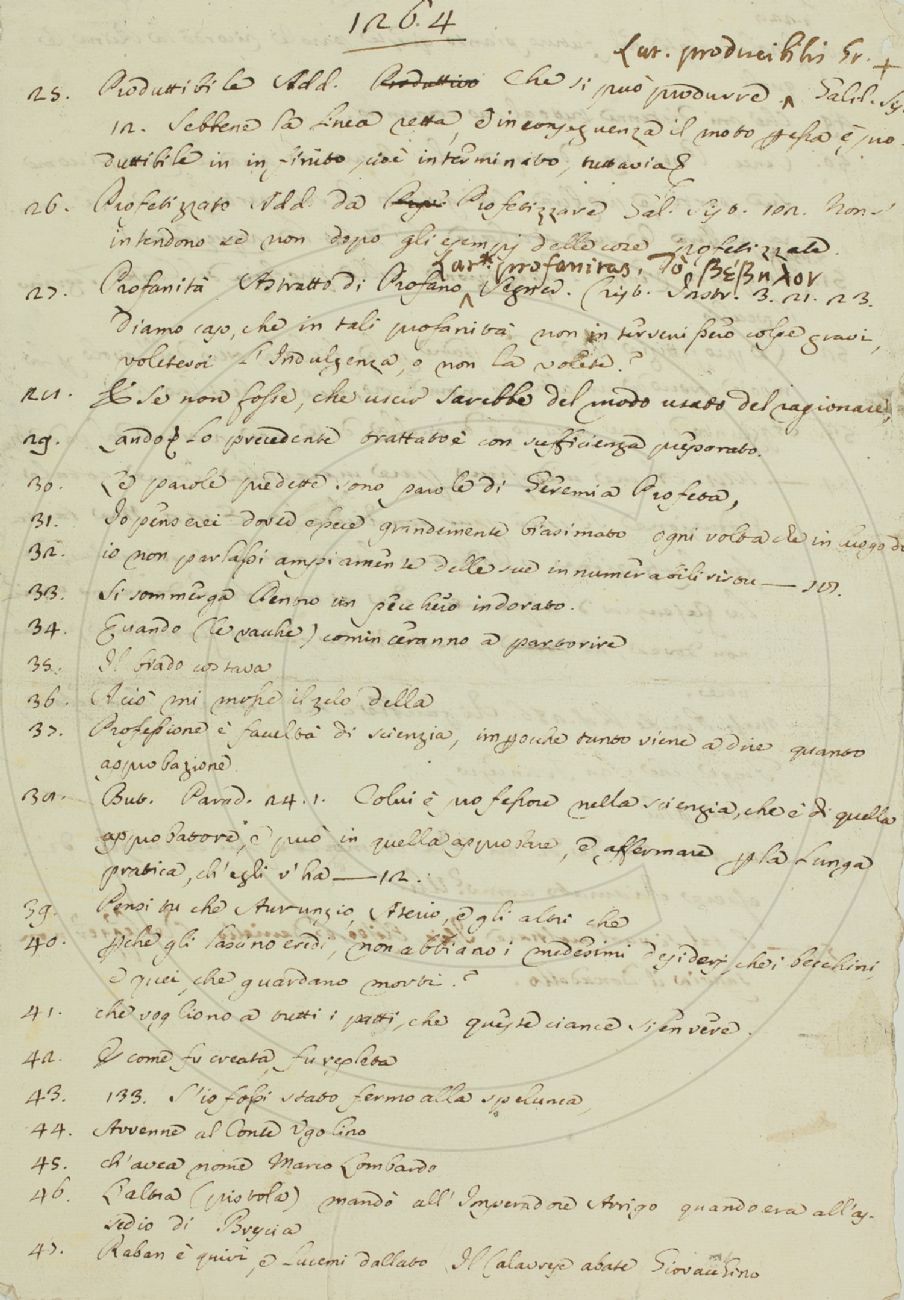 1264
Lat. producibilis Gr. +
25. Produttibile Add. Produttivo Che si può produrre ^ Galil. Sist.
12. Sebbene la linea retta, e in conseguenza il moto p essa è pro-
duttibile in infinito, cioè interminato, tuttavia &
26. Profetizzato Add. da Profetizzare Gal. Sist. 102. Non s'
intendono se non dopo gli esempj delle cose profetizzate.
Lat. profanitas, Τὸ βέβηλον
27. Profanità Astratto di Profano ^ Segner. Crist. Instr. 3. 21. 23.
Diamo caso, che in tali profanità non intervenissero colpe gravi,
voletevoi l'Indulgenza, o non la volete?
28. Se non fosse, che uscir sarebbe del modo usato del ragionare,
29. Lo precedente trattato è con sufficienza preparato.
30. Le parole predette sono parole di Geremia Profeta,
31. Io penserei dover essere grandemente biasimato ogni volta che in luogo di
32. io non parlassi ampiamente delle sue innumerabili virtu — 18.
33. Si sommerga dentro un pecchero indorato.
34. Quando (le vacche) cominceranno a partorire
35. Il brado costava
36. A ciò mi mosse il zelo della
37. Professione è facultà di scienzia, impocche tanto viene a dire quanto
approbazione.
38. But. Parad. 24. 1. Colui è professore nella scienzia, che è di quella
approbatore, e può in quella approbare, e affermare p la lunga
pratica, ch'egli v'ha — 12.
39. Pensi tu che Aurunzio, Aterio, e gli altri che
40. pche gli lasciino eredi, non abbiano i medesimi desiderj, che i becchini,
e quei, che guardano morti?
41. che vogliono a tutti i patti, che queste ciance sien vere.
42. E come fu creata, fu repleta
43. 133. S'io fossi stato fermo alla spelunca,
44. Avvenne al Conte Ugolino
45. ch'avea nome Marco Lombardo
46. L'altra (pistola) mandò all'Imperadore Arrigo quando era all'as-
sedio di Brescia
47. Raban è quivi, e lucemi dallato Il Calavrese abate Giovacchino